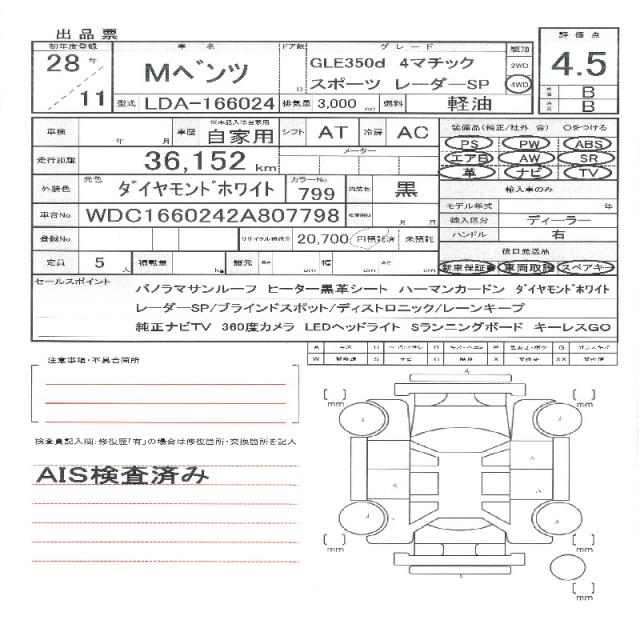 出品票
初年度登録 車名 ドア数 グレード 駆動 評価点
28年 11 Mベンツ D GLE350d 4マチック スポーツ レーダーSP 2WD 4WD 4.5
型式 LDA-166024 排気量 3,000 cc 燃料 軽油 B B
車検 年 月 車歴 ※未記入は自家用 自家用 シフト AT 冷房 AC 装備品(純正/社外 含) ○をつける
PS PW ABS
走行距離 36,152 km メーター エアB AW SR
革 ナビ TV
外装色 元色 ダイヤモンドホワイト カラーNo. 799 内装色 黒 輸入車のみ
モデル年式 年
車台No. WDC1660242A807798 月 日 輸入区分 ディーラー
登録No. リサイクル預託金 20,700 円預託済 未預託 ハンドル 右
後日発送品
定員 5人 積載量 kg 諸元 長さ cm 幅 cm 高さ cm 新車保証書 車両取説 スペアキー
セールスポイント
パノラマサンルーフ ヒーター黒革シート ハーマンカードン ダイヤモンドホワイト
レーダーSP/ブラインドスポット/ディストロニック/レーンキープ
純正ナビTV 360度カメラ LEDヘッドライト Sランニングボード キーレスGO
注意事項・不具合箇所
検査員記入欄:修復歴「有」の場合は修復箇所・交換箇所を記入
AIS検査済み
mm
mm
mm
mm
mm